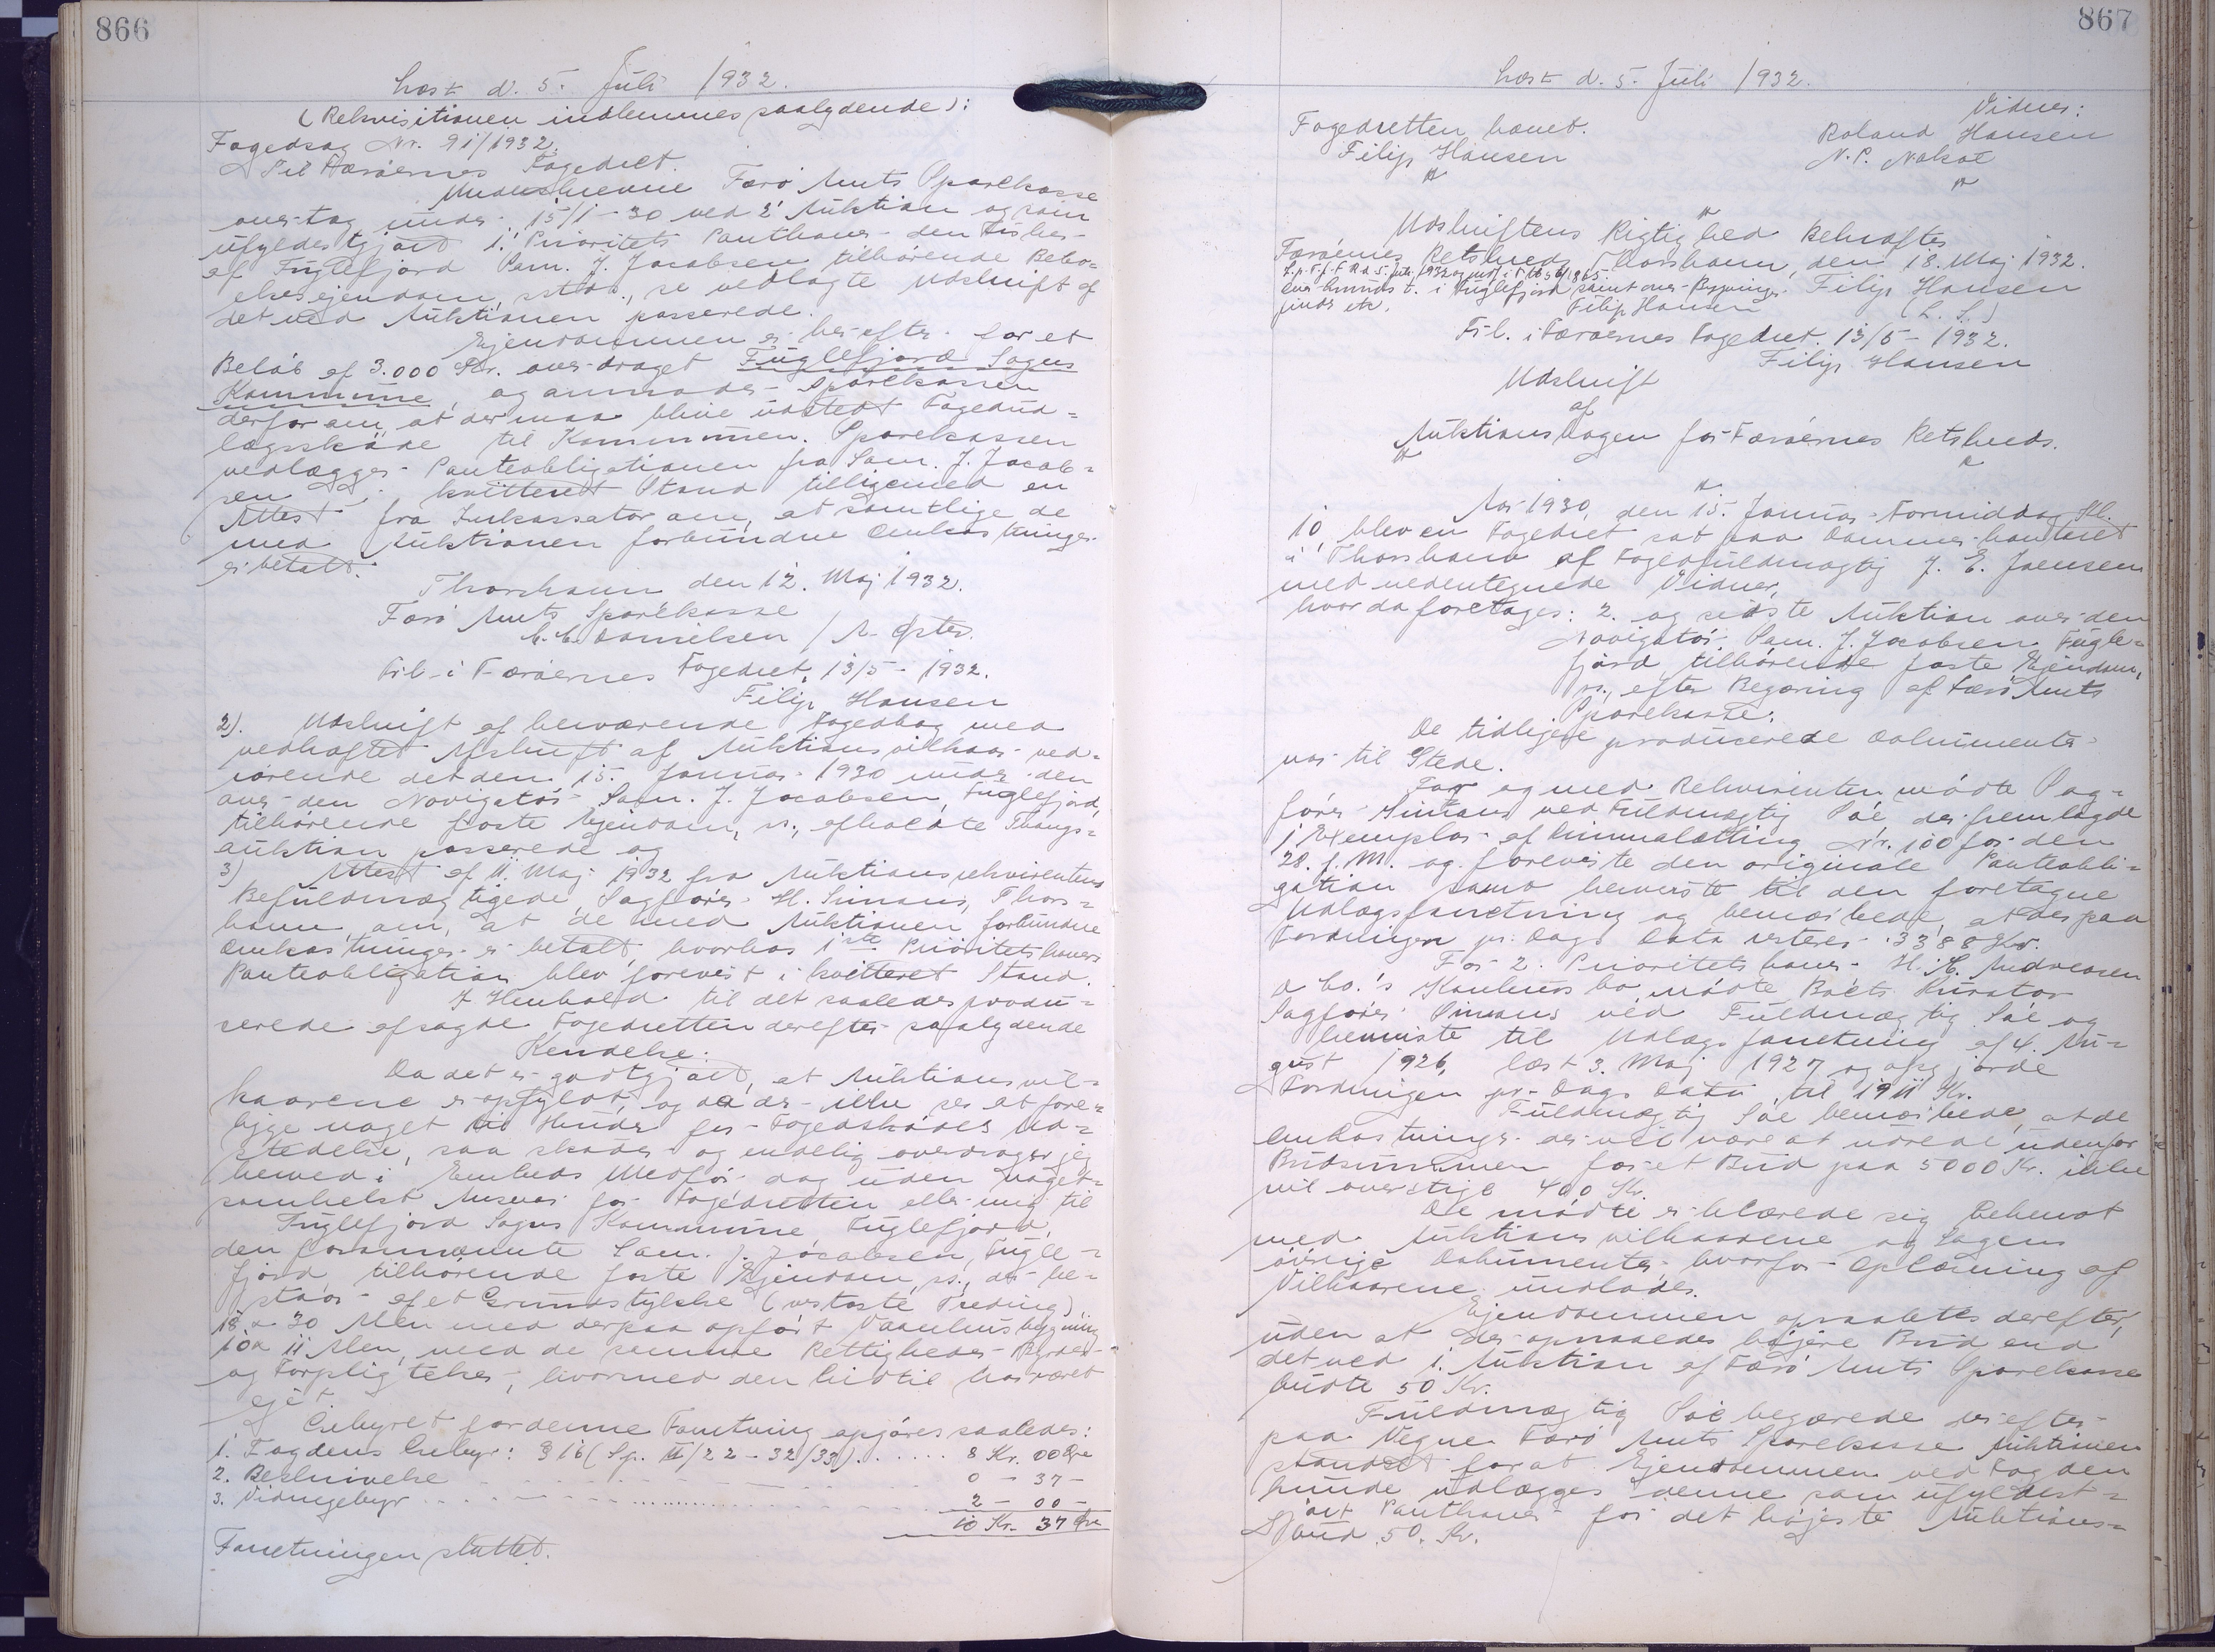 866
Læst d. 5. Juli 1932.
(Rekvisitionen indlemmes saalydende):
Fogedsag Nr. 91/1932.
Til Færøernes Fogedret.
Underskrevne Færø Amts Sparekasse
overtog under 15/1-30 ved 2' Auktion og som
ufyldestgjort 1.' Prioritets Panthaver den Fisker
af Fuglefjord Sam. J. Jacobsen tilhørende Bebo-
elsesejendom, sstds., se vedlagte Udskrift af
det ved Auktionen passerede.
Ejendommen er herefter for et
Beløb af 3.000 Kr. overdraget Fuglefjord Sogns
Kommune, og anmoder Sparekassen
derfor om, at der maa blive udstedt Fogedud-
lægsskøde til Kommunen. Sparekassen
vedlægger Panteobligationen fra Sam. J. Jacob-
sen i kvitteret Stand tilligemed en
Attest fra Inkassator om, at samtlige de
med Auktionen forbundne Omkostninger
er betalt.
Thorshavn den 12. Maj 1932.
Færø Amts Sparekasse
C. C. Danielsen / A.
Frl. i Færøernes Fogedret, 13/5 - 1932.
Filip Hansen
2). Udskrift af herværende Fogedbog med
vedhæftet Afskrift af Auktionsvilkaar ved-
rørende det den 15. Januar 1930 under den
over den Navigatør Sam. J. Jacobsen, Fuglefjord,
tilhørende faste Ejendom, ss., afholdte Tvangs-
auktion passerede og
3) Attest af 11. Maj 1932 fra Auktionsrekvirentens
Befuldmægtigede, Sagfører H. Simans, Thors-
havn, om, at de med Auktionen forbundne
Omkostninger er betalt, hvorhos 1ste Prioritetshavers
Panteobligation blev forevist i kvitteret Stand.
I Henhold til det saaledes produ-
cerede afsagde Fogedretten derefter saalydende
Kendelse:
Da det er godtgjort, at Auktionsvil-
kaarene er opfyldt, og da der ikke ses at fore-
ligge noget til Hinder for Fogedskødes Ud-
stedelse, saa skøder og endelig overdrager jeg
herved i Embeds Medfør dog uden noget-
somhelst Ansvar for Fogedretten eller mig til
Fuglefjord Sogns Kommune Fuglefjord,
den fornævnte Sam. J. Jacobsen, Fugle-
fjord, tilhørende faste Ejendom, ss., der be-
staar af et Grundstykke (vestaste Treding)
18 x 30 Alen med derpaa opført Vaanhusbygning
10 x 11 Alen, med de samme Rettigheder Byrder
og Forpligtelser, hvormed den hidtil har været
ejet.
Gebyret for denne Forretning opgøres saaledes:
1. Fogdens Gebyr: § 16 (Sp. II/22 - 32/33) ...... 8 Kr. 00 Øre
2. Beskrivelse 0 - 37 -
3. Vidnegebyr ............ 2 - 00 -
10 Kr. 37 Øre
Forretningen sluttet.
867
Læst d. 5. Juli 1932.
Fogedretten hævet.
Filip Hansen
Vidner:
Roland Hansen
N. P. Nolsøe
Udskriftens Rigtighed bekræftes
Færøernes Retskreds, Thorshavn, den 18. Maj 1932.
Filip Hansen
(L. S.)
Filip Hansen
Frl. i Færøernes Fogedret. 13/5 - 1932.
Filip Hansen
Udskrift
af
Auktionsbogen for Færøernes Retskreds.
Aar 1930, den 15. Januar Formiddag Kl.
10, blev en Fogedret sat paa Dommerkontoret
i Thorshavn af Fogedfuldmægtig J. E. Joensen
med vedentegnede Vidner,
hvor da foretoges: 2. og sidste Auktion over den
Navigatør Sam. J. Jacobsen, Fugle-
fjord tilhørende faste Ejendom,
ss., efter Begæring af Færø Amts
Sparekasse.
De tidligere producerede Dokumenter
var til Stede.
For og med Rekvirenten mødte Sag-
fører Simans ved Fuldmægtig Poé, der fremlagde
1 Exemplar af Dimmalætting Nr. 100 for den
28. f. M. og foreviste den originale Panteobli-
gation samt henviste til den foretagne
Udlægsforretning og bemærkede, at der paa
Fordringen pr. Dags Dato resterer 3388 Kr.
For 2. Prioritetshaver H. C. Andreasen
& Co.'s Konkursbo mødte Boets Kurator
Sagfører Simans ved Fuldmægtig Poé og
henviste til Udlægsforretning af 4. Au-
gust 1926, læst 3. Maj 1927 og opgjorde
Fordringen pr. Dags Dato til 1911 Kr.
Fuldmægtig Poé bemærkede, at de
Omkostninger der vil være at udrede udenfor
Budsummen for et Bud paa 5000 Kr. ikke
vil overstige 400 Kr.
De mødte erklærede sig bekendt
med Auktionsvilkaarene og Sagens
øvrige Dokumenter hvorfor Oplæsning af
Vilkaarene undlodes.
Ejendommen opraabtes derefter,
uden at der opnaaedes højere Bud end
det ved 1. Auktion af Færø Amts Sparekasse
budte 50 Kr.
Fuldmægtig Poé begærede derefter
paa Vegne Færø Amts Sparekasse Auktionen
standset for at Ejendommen ved Fogden
kunde udlægges denne som ufyldest-
gjort Panthaver for det højeste Auktions-
bud 50. Kr.